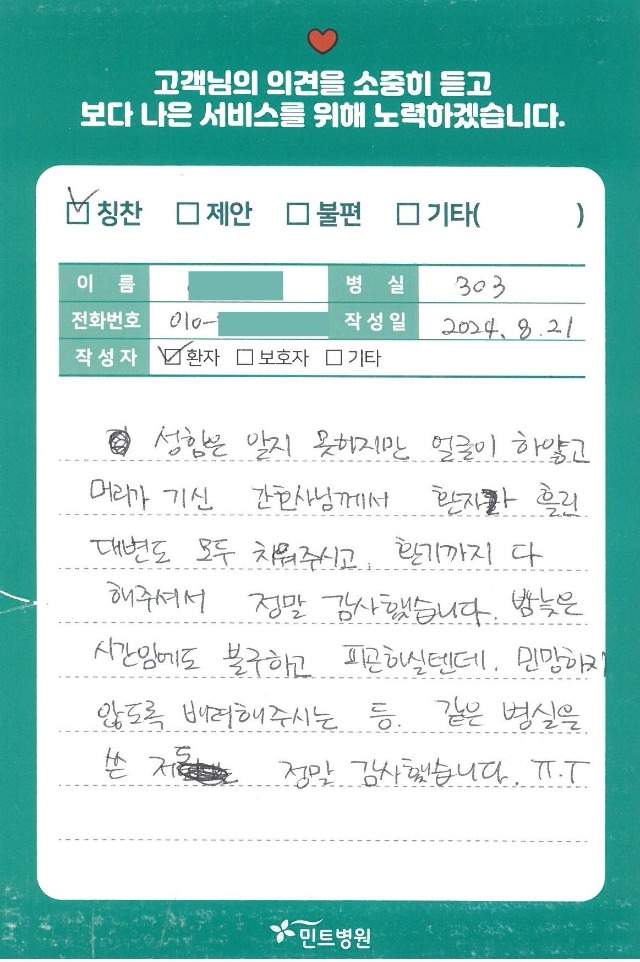 고객님의 의견을 소중히 듣고
보다 나은 서비스를 위해 노력하겠습니다.
칭찬 제안 불편 기타( )
이 름 병 실 303
전화번호 010- 작성일 2024. 8. 21
작성자 환자 보호자 기타
성함은 알지 못하지만 얼굴이 하얗고
머리가 기신 간호사님께서 환자가 흘린
대변도 모두 치워주시고, 환기까지 다
해주셔서 정말 감사했습니다. 밤늦은
시간임에도 불구하고 피곤하실텐데, 민망하지
않도록 배려해주시는 등. 같은 병실을
쓴 저도 정말 감사했습니다. ㅠ.ㅜ
민트병원